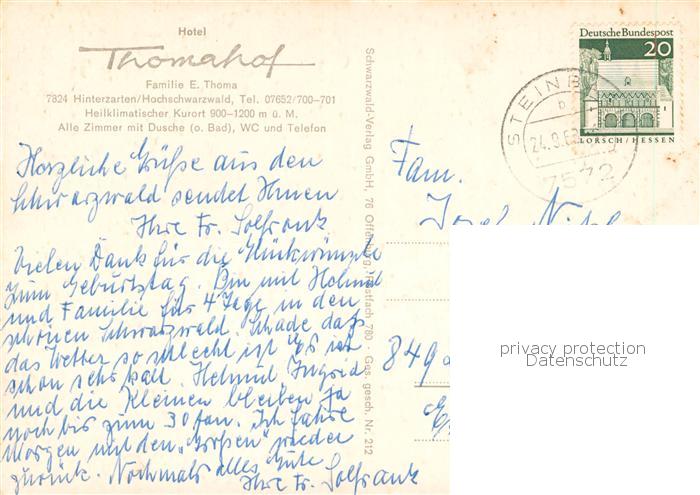 Hotel
Thomahof
Familie E. Thoma
7824 Hinterzarten/Hochschwarzwald, Tel. 07652/700–701
Heilklimatischer Kurort 900–1200 m ü. M.
Alle Zimmer mit Dusche (o. Bad), WC und Telefon
Herzliche Grüße aus den
Schwarzwald sendet Ihnen
Ihre Fr. Solfrank
Vielen Dank für die Glückwünsche
zum Geburtstag. Bin mit Helmut
und Familie für 4 Tage in den
schönen Schwarzwald. Schade daß
das Wetter so schlecht ist Es ist
schon sehr kalt. Helmut Ingrid
und die Kleinen bleiben ja
noch bis zum 30 fan. Ich fahre
Morgen mit den „Großen" wieder
zurück. Nochmals alles Gute
Ihre Fr. Solfrank
Schwarzwald-Verlag GmbH, 76 Offenburg, Postfach 780 · Ges. gesch. Nr. 212
Deutsche Bundespost
20
LORSCH/HESSEN
STEINB
b
24.9.6
7572
Fam.
Josef
849
privacy protection
Datenschutz